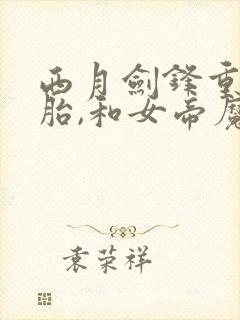 西月剑锋重
胎,和女帝魔
袁荣祥